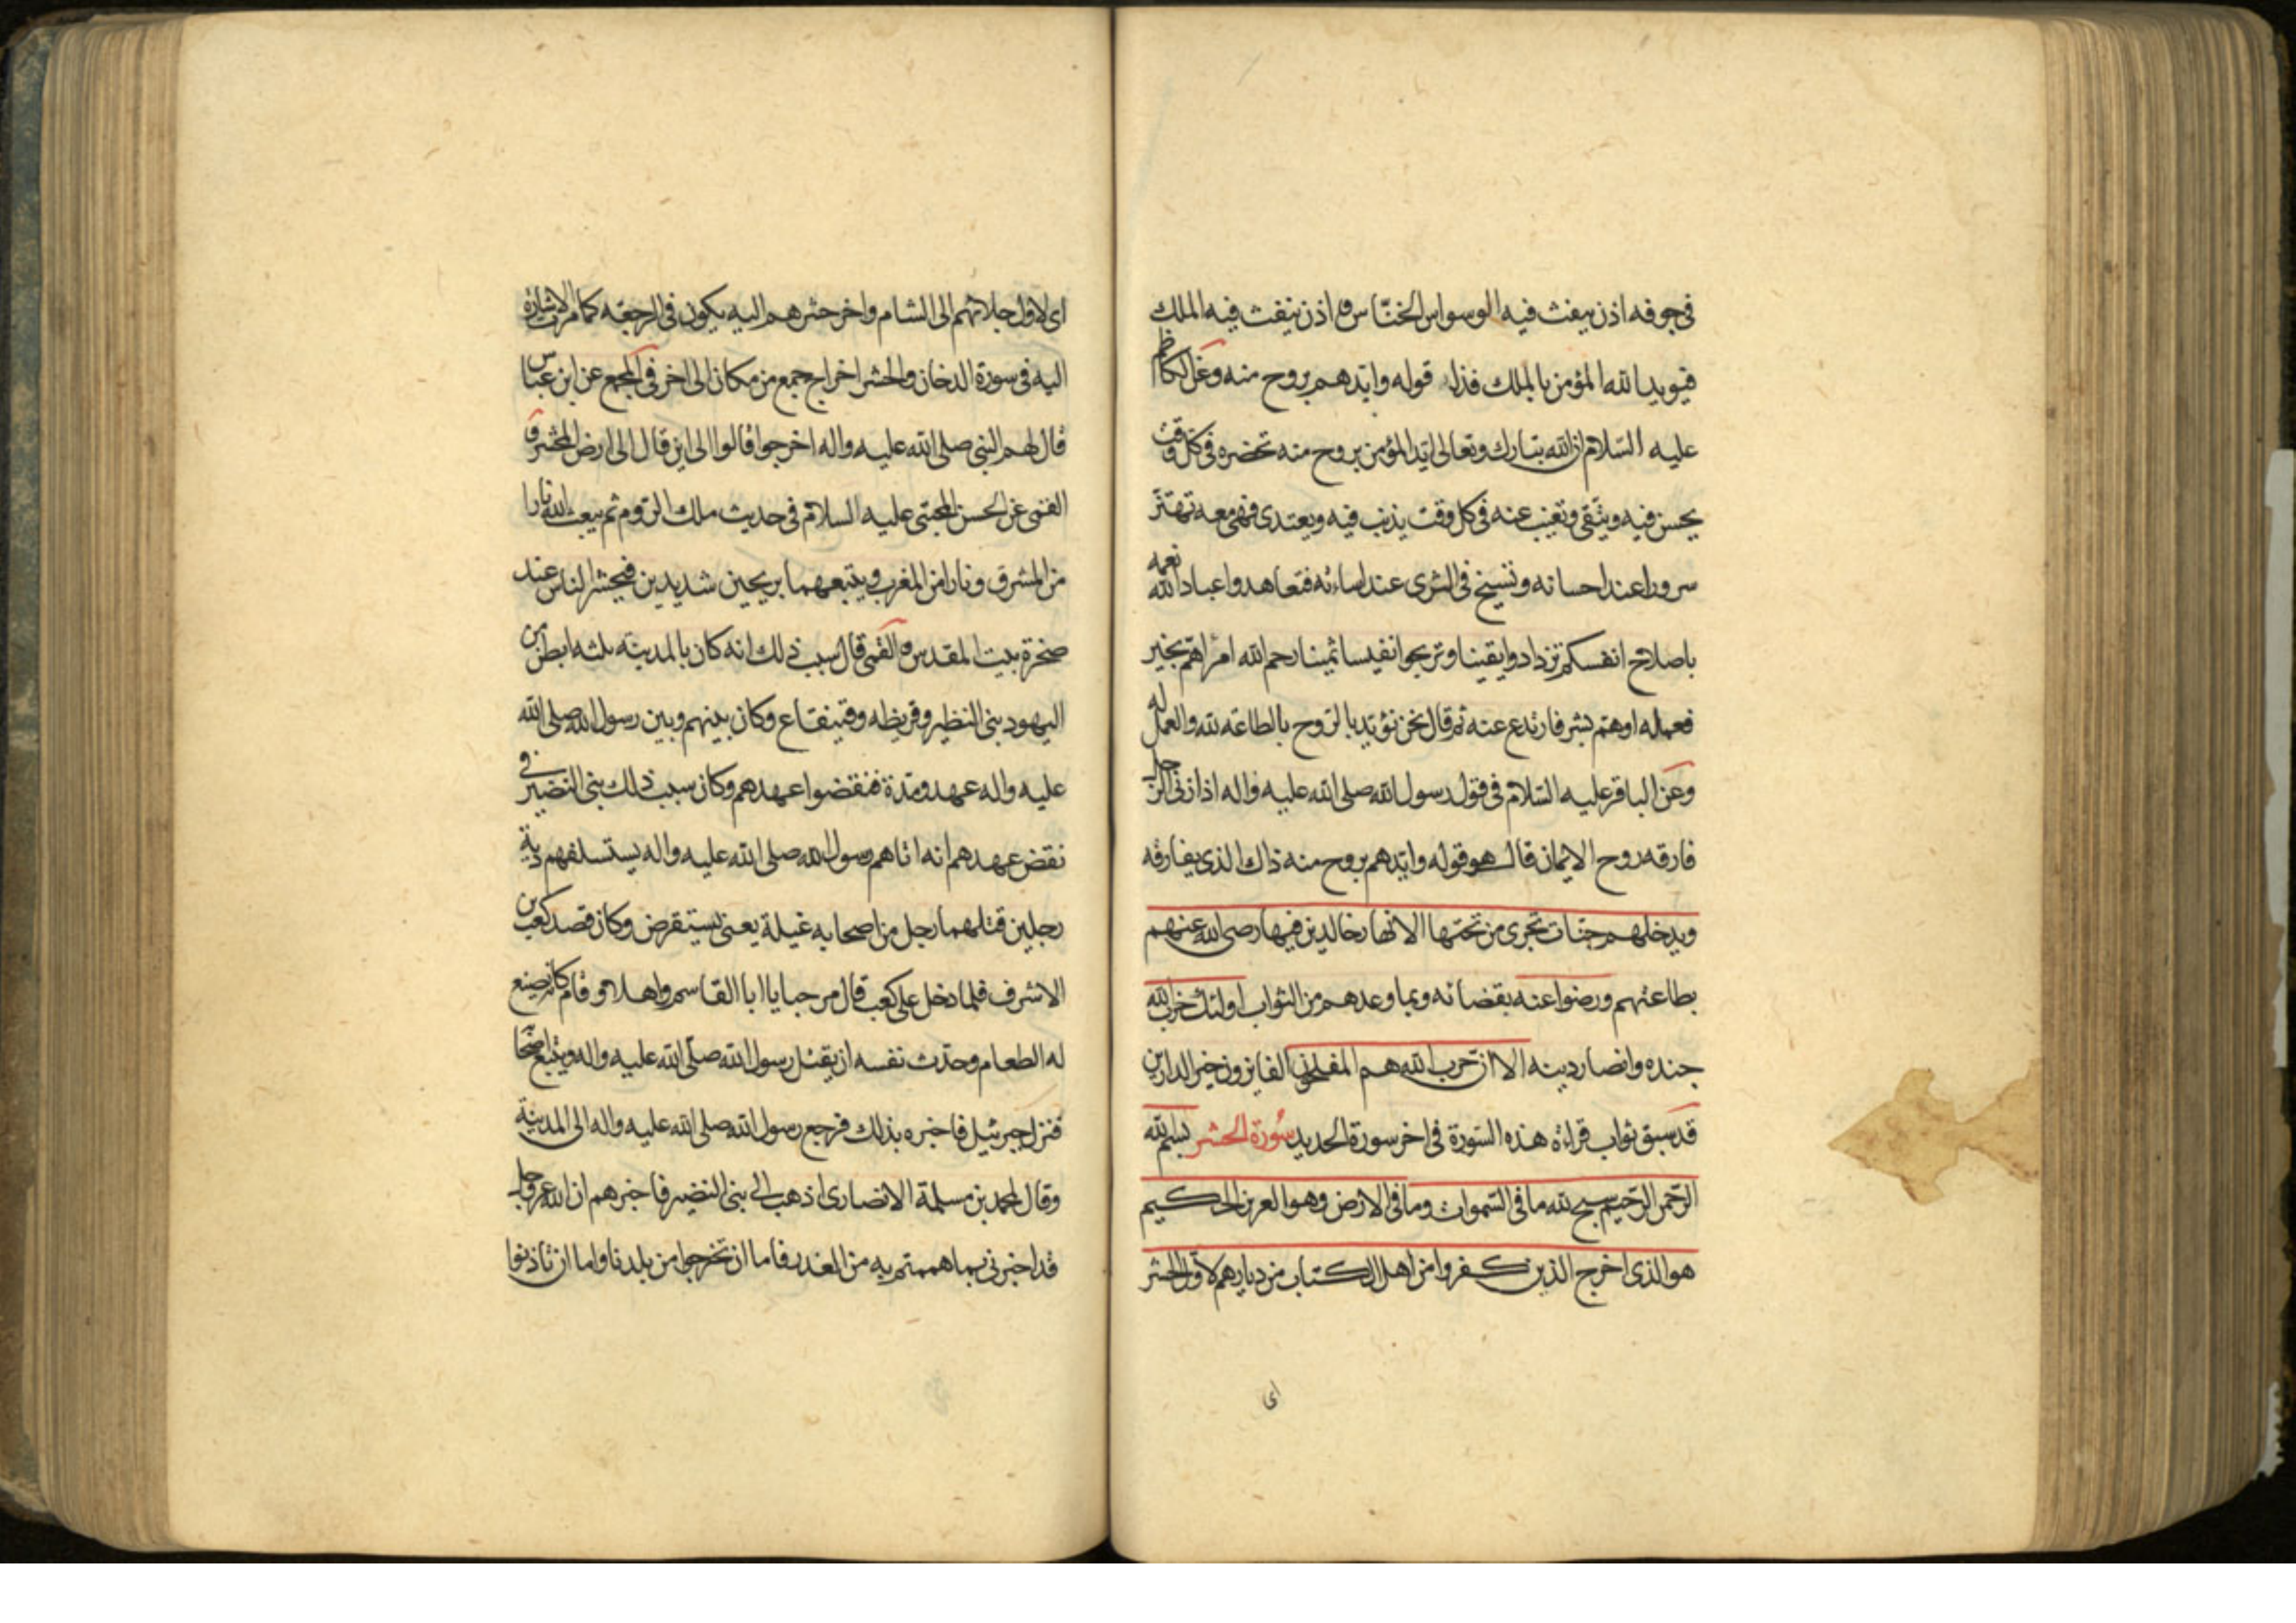 فى جوفه اذن ينفث فيه الوسواس الخنّاس و اذن ينفث فيه الملك
فيويد الله المؤمن بالملك فذلك قوله وايّدهم بروح منه وعن الكاظم
عليه السّلام ان الله تبارك وتعالى ايّد المؤمن بروح منه تحضره فى كل وقت
يحسن فيه ويتّقى وتغيب عنه فى كل وقت يذنب فيه ويعتدى فهى معه تهتزّ
سرورا عند احسانه وتسيخ فى الثرى عند اساءته فتعاهدوا عباد الله نعمه
باصلاح انفسكم تزدادوا يقينا وتربحوا نفيسا ثمينا رحم الله امرا همّ بخير
فعمله او همّ بشر فارتدع عنه ثم قال نحن نؤيّد بالرّوح بالطاعة لله والعمل له
وعن الباقر عليه السّلام فى قول رسول الله صلى الله عليه واله اذا زنى الرجل
فارقه روح الايمان قال هو قوله وايّدهم بروح منه ذاك الذى يفارقه
ويدخلهم جنّات تجرى من تحتها الانهار خالدين فيها رضى الله عنهم
بطاعتهم ورضوا عنه بقضائه وبما وعدهم من الثواب اولئك حزب الله
جنده وانصار دينه الا ان حزب الله هم المفلحون الفايزون بخير الدارين
قد سبق ثواب قراءة هذه السّورة فى اخر سورة الحديد سُورة الحشر بسم الله
الرّحمن الرّحيم سبّح لله ما فى السّموات وما فى الارض وهو العزيز الحكيم
هو الذى اخرج الذين كفروا من اهل الكتاب من ديارهم لاوّل الحشر
اى
اى لاوّل جلائهم الى الشام واخر حشرهم اليه يكون فى الرجعة كما مرّت الاشارة
اليه فى سورة الدخان والحشر اخراج جمع من مكان الى اخر فى المجمع عن ابن عباس
قال لهم النبى صلى الله عليه واله اخرجوا قالوا الى اين قال الى ارض المحشر و
القمى عن الحسن المجتبى عليه السلام فى حديث ملك الروم ثم يبعث الله نارا
من المشرق ونارا من المغرب ويتبعهما بريحين شديدين فيحشر الناس عند
صخرة بيت المقدس و القمى قال سبب ذلك انه كان بالمدينة ثلثه ابطن من
اليهود بنى النظير وقريظه وقينقاع وكان بينهم وبين رسول الله صلى الله
عليه واله عهد ومدّة فنقضوا عهدهم وكان سبب ذلك بنى النضير فى
نقض عهدهم انه اتاهم رسول الله صلى الله عليه واله يستسلفهم دية
رجلين قتلهما رجل من اصحابه غيلة يعنى يستقرض وكان قصد كعب بن
الاشرف فلما دخل على كعب قال مرحبا يا ابا القاسم واهلا و قام كانه يصنع
له الطعام وحدّث نفسه ان يقتل رسول الله صلّى الله عليه واله ويتبع اصحا
فنزل جبرئيل فاخبره بذلك فرجع رسول الله صلى الله عليه واله الى المدينة
وقال لمحمد بن مسلمة الانصارى اذهب الى بنى النضير فاخبرهم ان الله عز وجل
قد اخبرنى بما هممتم به من الغدر فاما ان تخرجوا من بلدنا واما ان تاذنوا